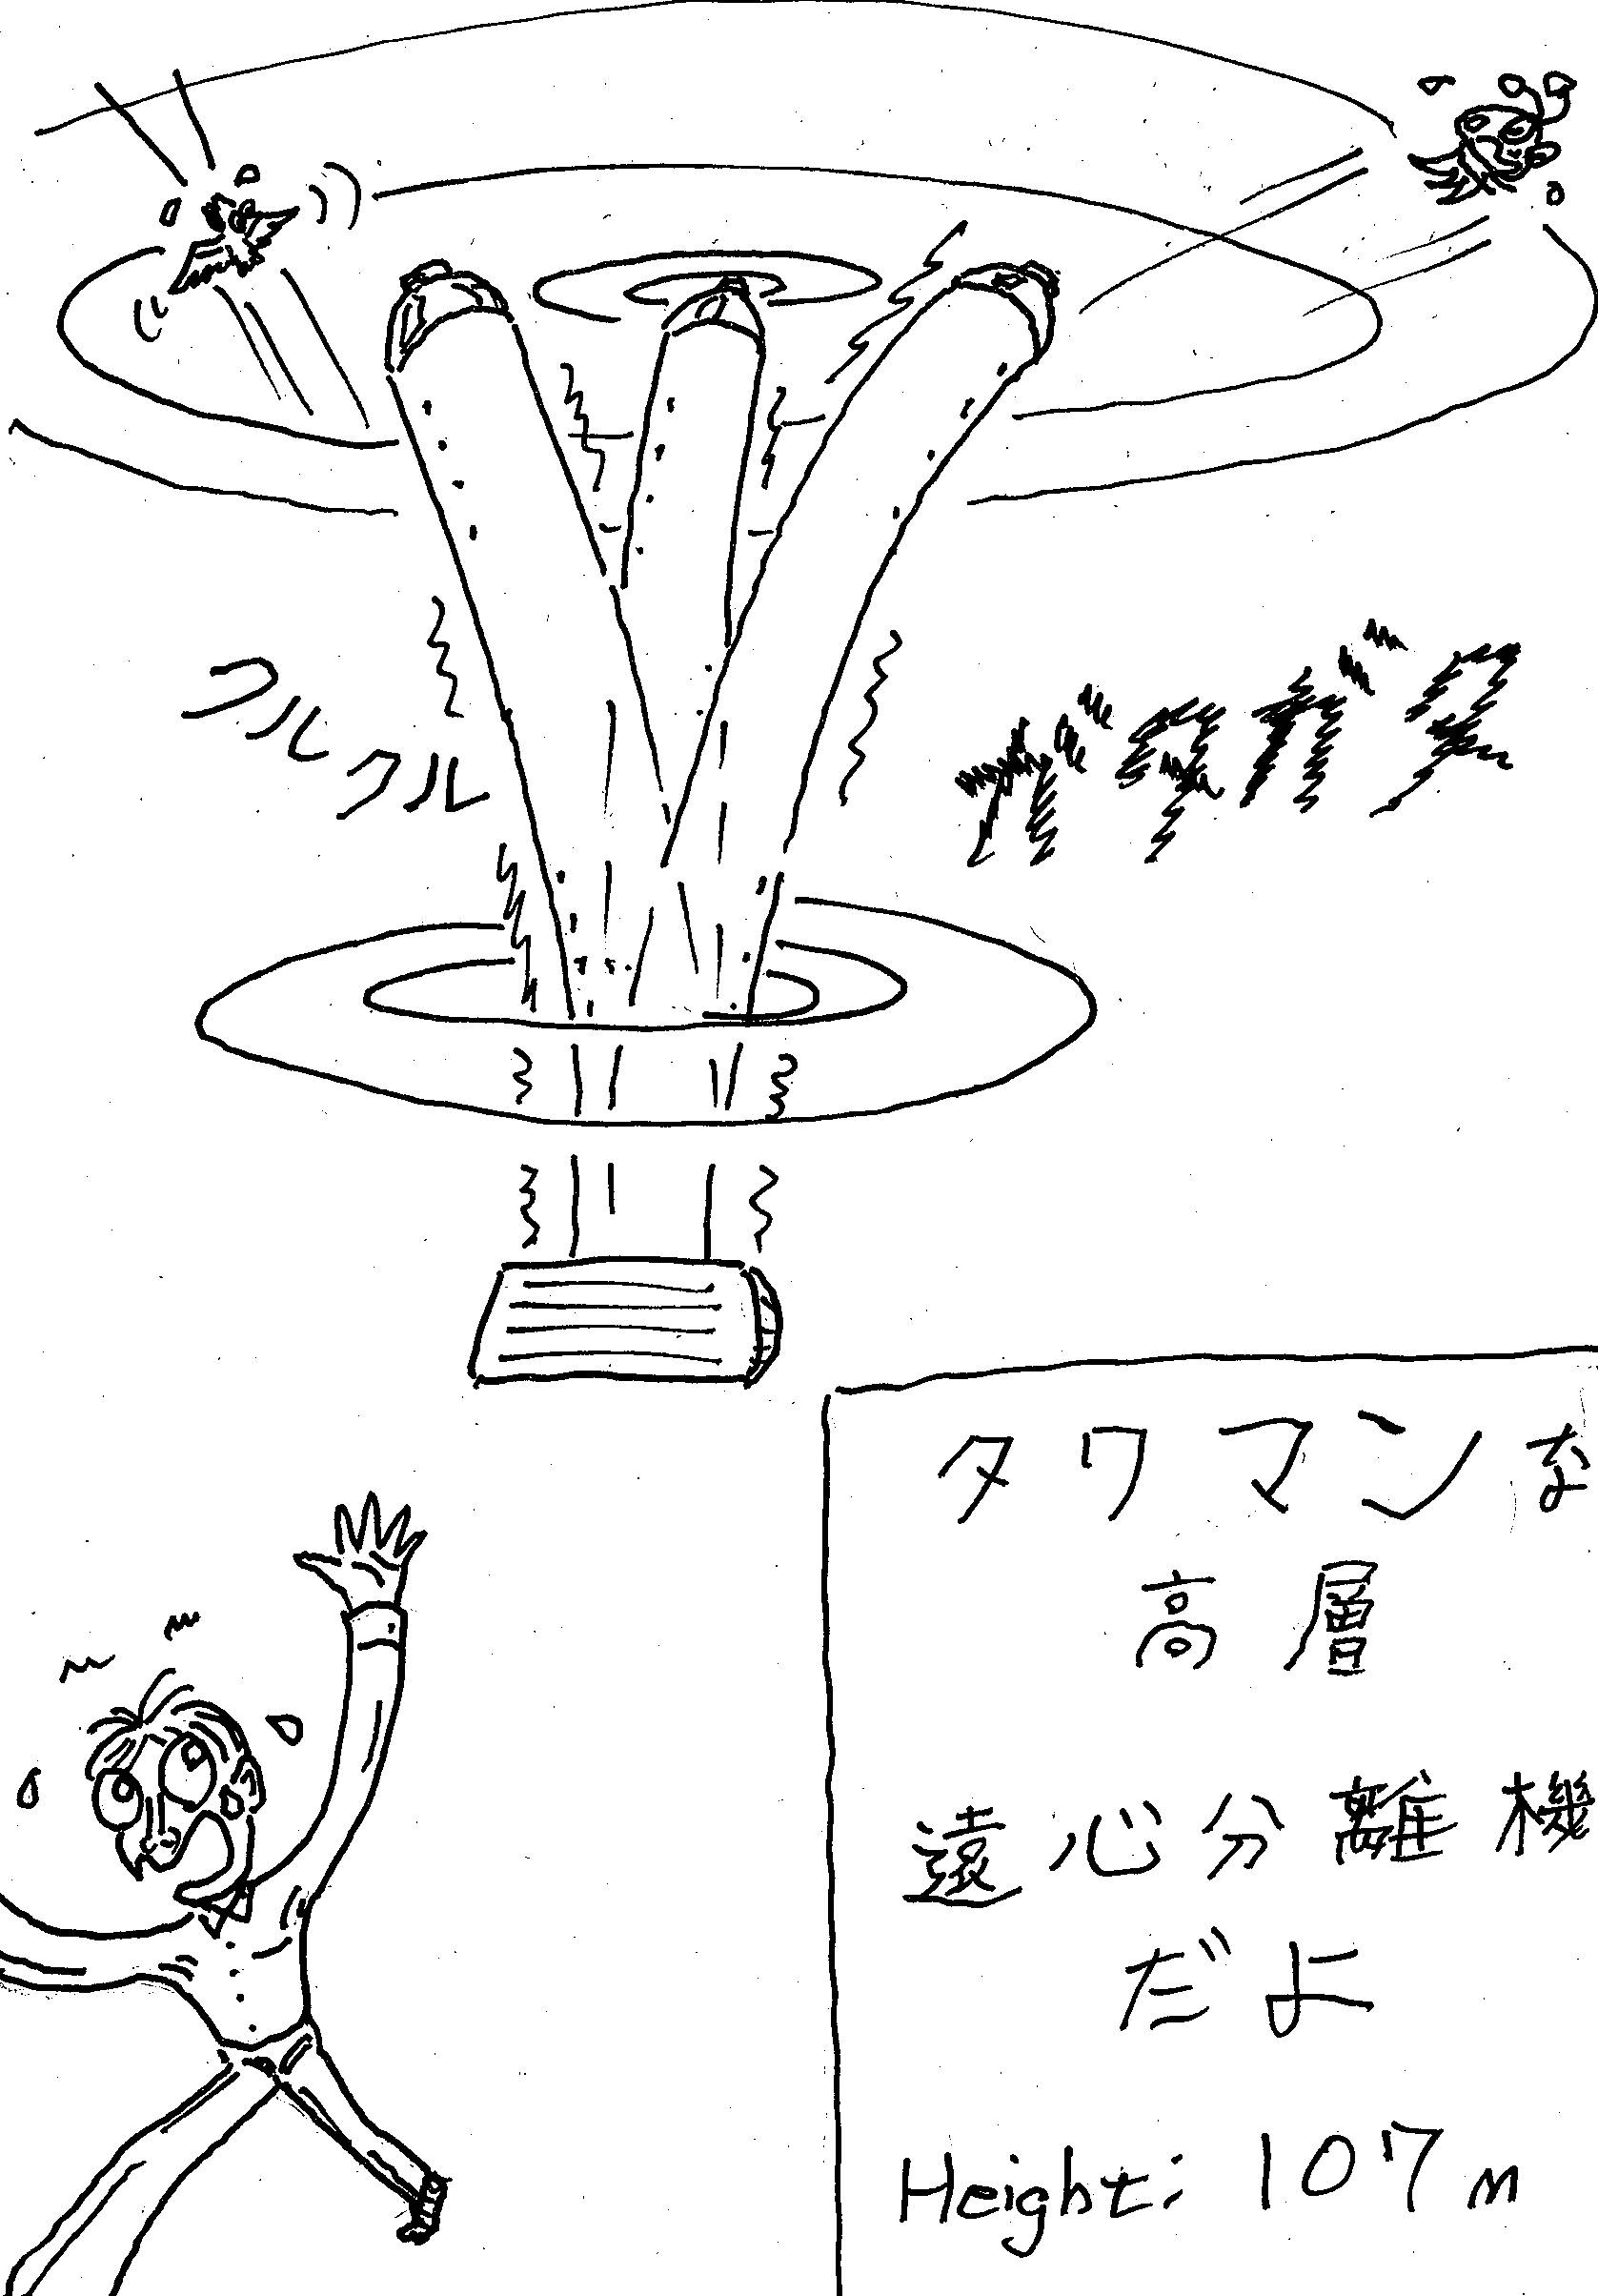 クルクル
ガタガタ
タワマンな
高層
遠心分離機
だよ
Height: 107m